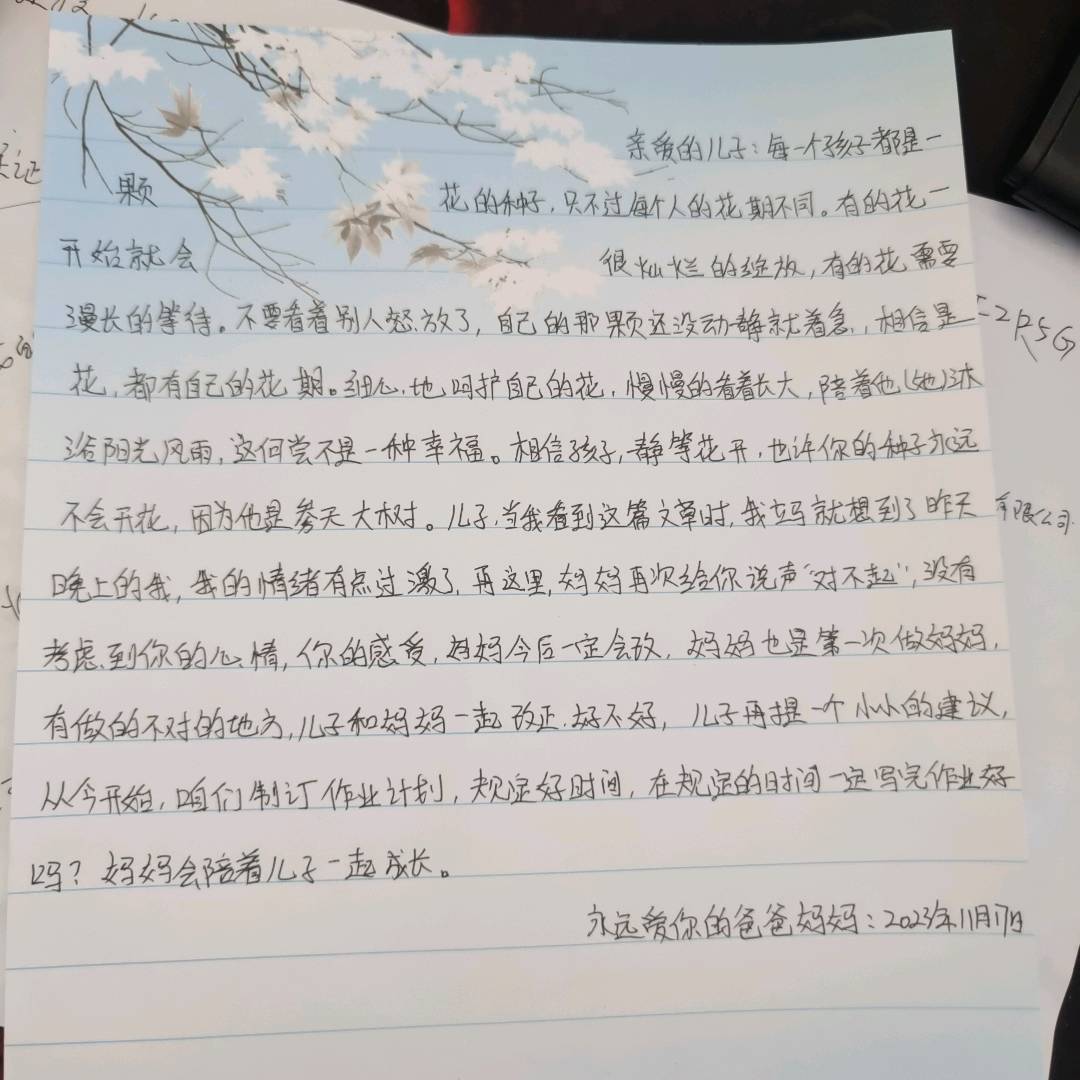 亲爱的儿子：每一个孩子都是一
颗 花的种子，只不过每个人的花期不同。有的花一
开始就会 很灿烂的绽放，有的花需要
漫长的等待。不要看着别人怒放了，自己的那颗还没动静就着急，相信是
花，都有自己的花期。细心地呵护自己的花，慢慢的看着长大，陪着他（她）沐
浴阳光风雨，这何尝不是一种幸福。相信孩子，静等花开，也许你的种子永远
不会开花，因为他是参天大树。儿子，当我看到这篇文章时，我妈就想到了昨天
晚上的我，我的情绪有点过激了，再这里，妈妈再次给你说声“对不起”，没有
考虑到你的心情，你的感受，妈妈今后一定会改，妈妈也是第一次做妈妈，
有做的不对的地方，儿子和妈妈一起改正，好不好，儿子再提一个小小的建议，
从今开始，咱们制订作业计划，规定好时间，在规定的时间一定写完作业好
吗？妈妈会陪着儿子一起成长。
永远爱你的爸爸妈妈：2023年11月17日
2R5G
有限公司
证